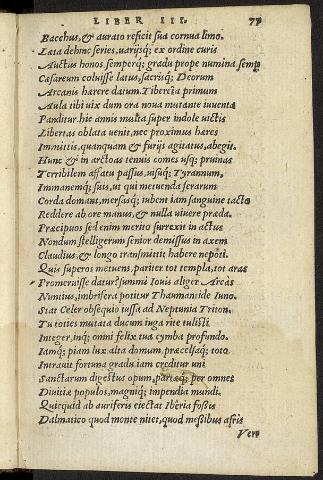 LIBER III. 77
Bacchus, & aurato reficit sua cornua limo.
Lata dehinc series, uarijsq; ex ordine curis
Auctus honos semperq; gradu prope numina semp
Cæsareum coluisse latus, sacrisq; Deorum
Arcanis hærere datum. Tibereia primum
Aula tibi uix dum ora noua mutante iuuenta
Panditur. hic annis multa super indole uictis
Libertas oblata uenit, nec proximus hæres
Immitis, quanquam & furijs agitatus, abegit.
Hunc & in arctoas tenuis comes usq; pruinas
Terribilem affatu passus, uisuq; Tyrannum,
Immanemq; suis, ut qui metuenda ferarum
Corda domant, mersasq; iubent iam sanguine tacto
Reddere ab ore manus, & nulla uiuere præda.
Præcipuos sed enim merito surrexit in actus
Nondum stelligerum senior demissus in axem
Claudius, & longo transmittit habere nepoti.
Quis superos metuens, pariter tot templa, tot aras
Promeruisse datur? summi Iouis aliger Arcas
Nuntius, imbrifera potitur Thaumantide Iuno.
Stat celer obsequio iussa ad Neptunia Triton.
Tu toties mutata ducum iuga rite tulisti
Integer, inq; omni felix tua cymba profundo.
Iamq; piam lux alta domum, præcelsaq; toto
Intrauit fortuna gradu iam creditur uni
Sanctarum digestus opum, partæq; per omnes
Diuitiæ populos, magniq; impendia mundi.
Quicquid ab auriferis eiectat Ibêria fossis
Dalmatico quod monte nitet, quod messibus afris
Verr